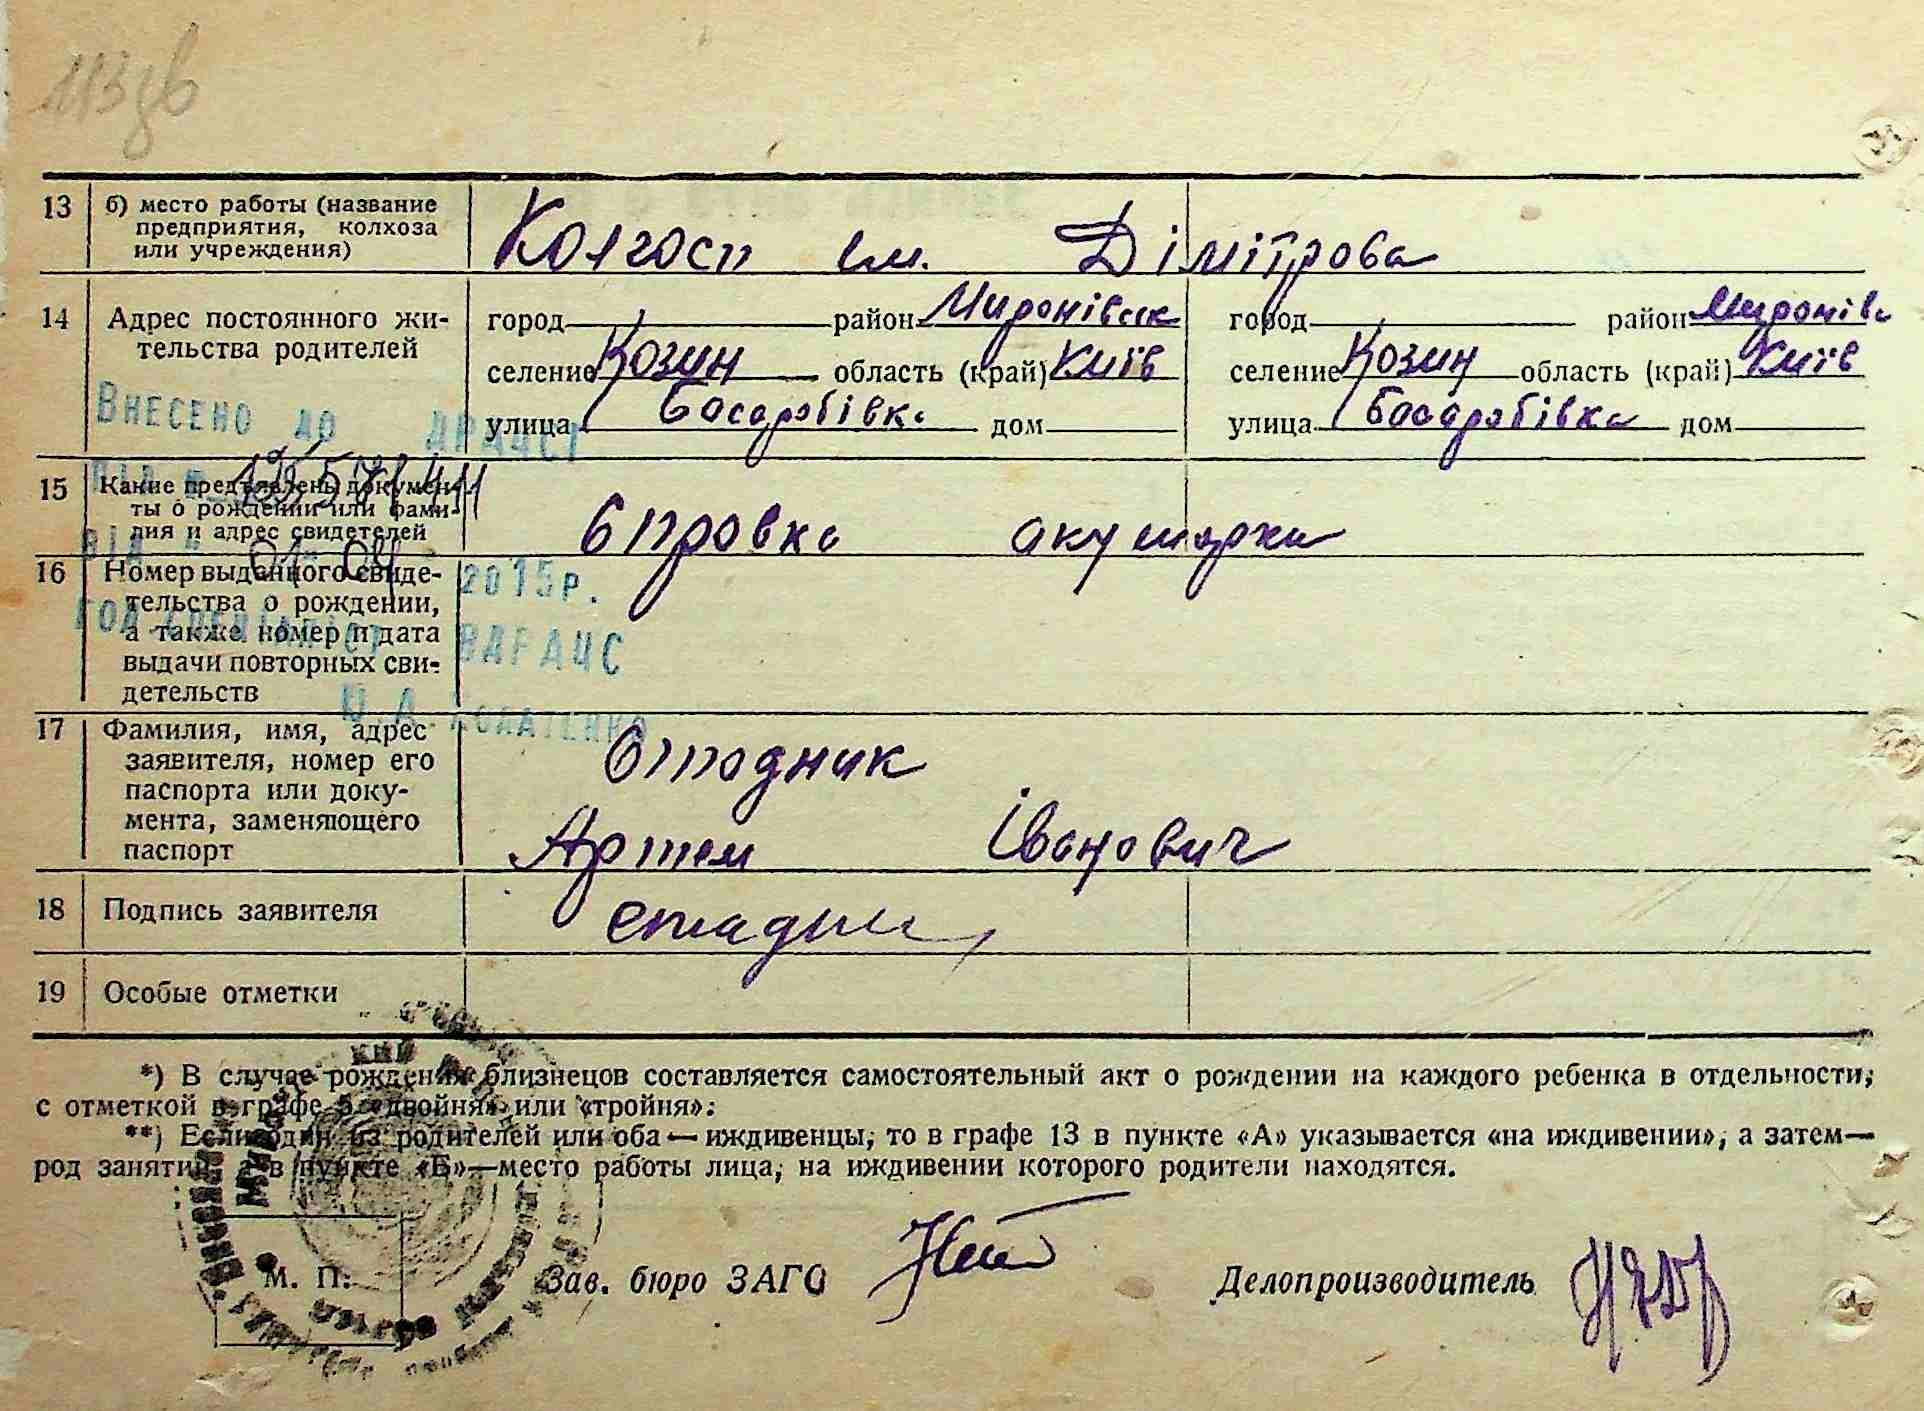 113 зв
13 б) место работы (название предприятия, колхоза или учреждения) Колгосп ім. Дімітрова
14 Адрес постоянного жи-
тельства родителей
город район Миронівськ город район Миронівс
селение Козин область (край) Київ селение Козин область (край) Київ
улица Басарабівка дом улица Басарабівка дом
Внесено до ДРАЦСГ
15 Какие предъявлены докумен-
ты о рождении или фами-
лия и адрес свидетелей
Справка акушерки
від " 01 " 04 2015р.
16 Номер выданного свиде-
тельства о рождении,
а также номер и дата
выдачи повторных сви-
детельств
гол. спеціаліст ВДРАЦС
17 Фамилия, имя, адрес
заявителя, номер его
паспорта или доку-
мента, заменяющего
паспорт
Стадник
Артем Іванович
18 Подпись заявителя стадник
19 Особые отметки
*) В случае рождения близнецов составляется самостоятельный акт о рождении на каждого ребенка в отдельности,
с отметкой в графе 5 «двойня» или «тройня».
**) Если один из родителей или оба — иждивенцы, то в графе 13 в пункте «А» указывается «на иждивении», а затем—
род занятий, а в пункте «Б»—место работы лица, на иждивении которого родители находятся.
М. П. Зав. бюро ЗАГС Делопроизводитель